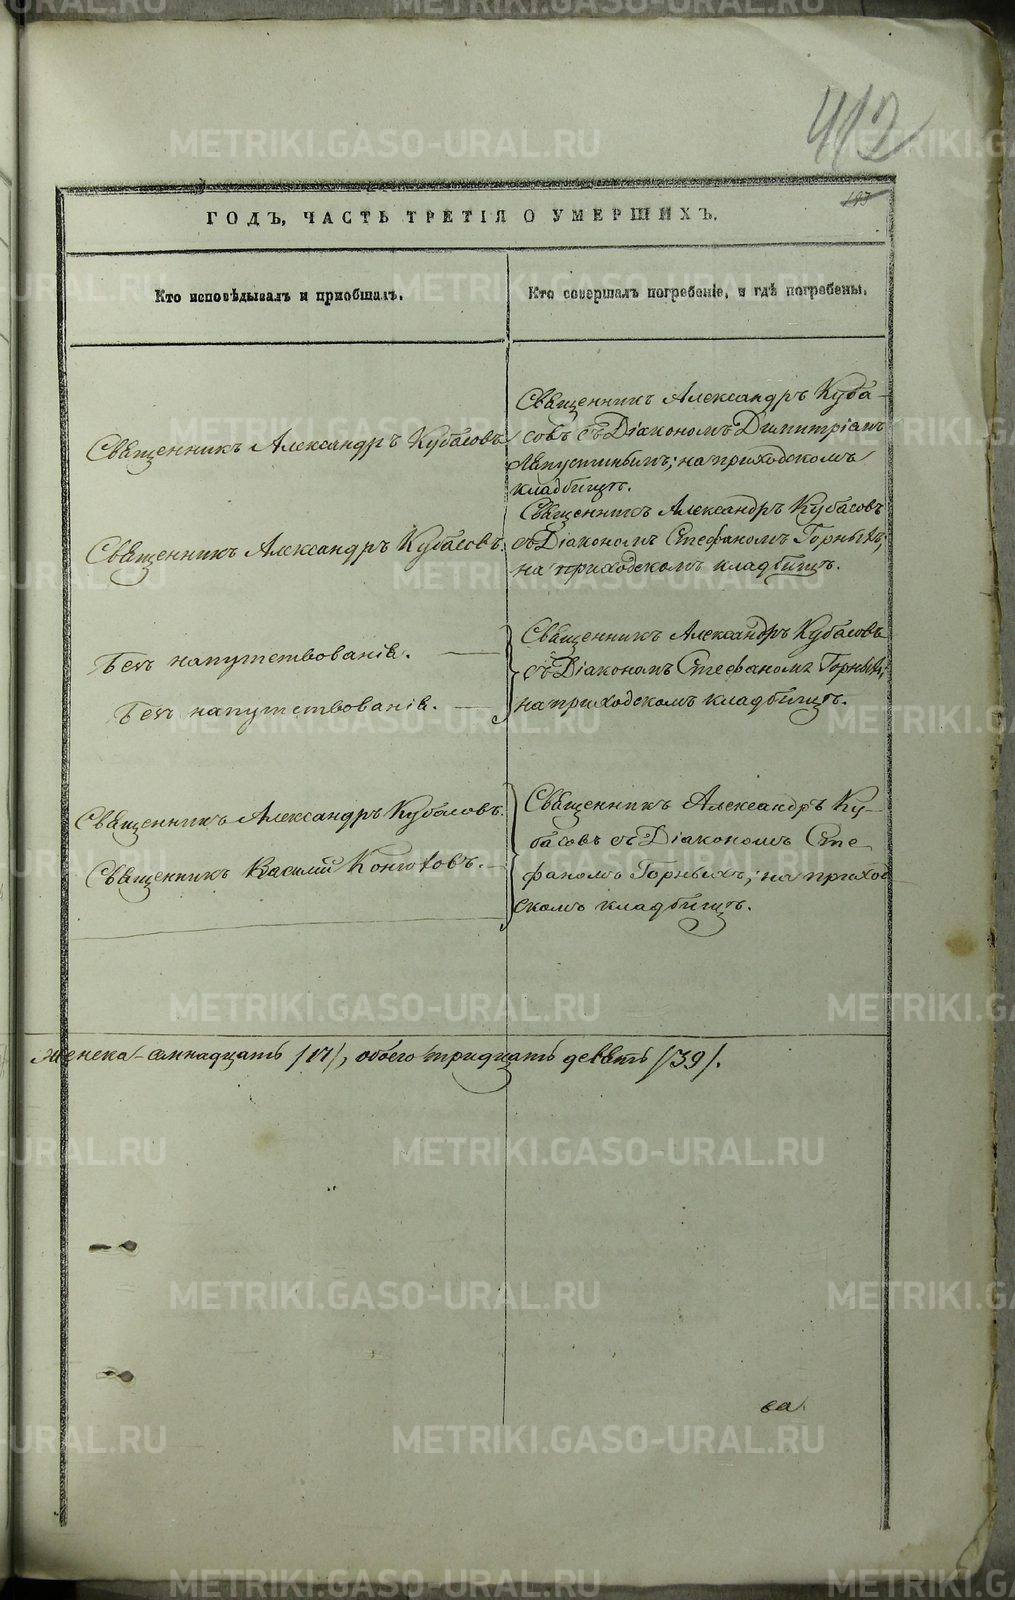 412
ГОДЪ, ЧАСТЬ ТРЕТІЯ О УМЕРШИХЪ.
Кто исповѣдывалъ и пріобщалъ.
Кто совершалъ погребеніе, и гдѣ погребены.
Священникъ Александръ Кубасовъ
Священникъ Александръ Куба-
совъ съ Діакономъ Димитріемъ
Августинымъ; на приходскомъ
кладбищѣ.
Священникъ Александръ Кубасовъ.
Священникъ Александръ Кубасовъ
съ Діакономъ Стефаномъ Горныхъ;
на приходскомъ кладбищѣ.
Безъ напутствованія.
Безъ напутствованія.
Священникъ Александръ Кубасовъ
съ Діакономъ Стефаномъ Горныхъ;
на приходскомъ кладбищѣ.
Священникъ Александръ Кубасовъ.
Священникъ Василій
Священникъ Александръ Ку-
басовъ съ Діакономъ Сте-
фаномъ Горныхъ; на приход
скомъ кладбищѣ.
женска – семнадцать /17/, обоего тридцать девять /39/.
ва
METRIKI.GASO-URAL.RU